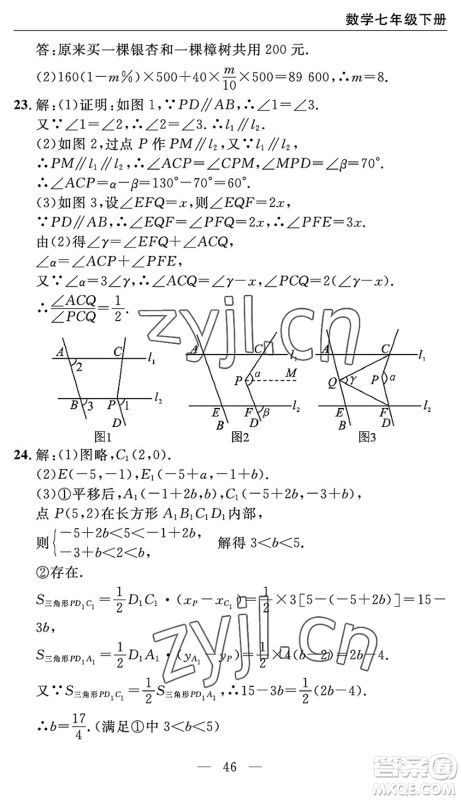 数学七年级下册
答:原来买一棵银杏和一棵樟树共用 200 元.
(2)160(1－m%)×500＋40×m/10×500＝89 600,∴m＝8.
23.解:(1)证明:如图 1,∵PD∥AB,∴∠1＝∠3.
又∵∠1＝∠2,∴∠2＝∠3,∴l₁∥l₂.
(2)如图 2,过点 P 作 PM∥l₁,又∵l₁∥l₂,
∴PM∥l₁∥l₂,∴∠ACP＝∠CPM,∠MPD＝∠β＝70°.
∴∠ACP＝∠α－∠β＝130°－70°＝60°.
(3)如图 3,设∠EFQ＝x,则∠EQF＝2x.
∵PD∥AB,∴∠EQF＝∠PFQ＝2x,∴∠PFE＝3x.
由(2)得∠γ＝∠EFQ＋∠ACQ,
∠α＝∠ACP＋∠PFE.
又∵∠α＝3∠γ,∴∠ACQ＝∠γ－x,∴∠PCQ＝2(∠γ－x),
∴∠ACQ/∠PCQ＝1/2.
A C 2 l₁ B 3 P 1 l₂ D
图1
A C l₁ P α M E F β l₂ B D
图2
A C l₁ Q γ α P E F l₂ B D
图3
24.解:(1)图略,C₁(2,0).
(2)E(－5,－1),E₁(－5＋a,－1＋b).
(3)①平移后,A₁(－1＋2b,－3＋b),C₁(－5＋2b,b).
点 P(5,2)在长方形 A₁B₁C₁D₁内部,
则{－5＋2b＜5＜－1＋2b, －3＋b＜2＜b, 解得 3＜b＜5.
②存在.
S三角形PD₁C₁＝1/2 D₁C₁·(x_P－x_C₁)＝1/2×3[5－(－5＋2b)]＝15－
3b,
S三角形PD₁A₁＝1/2 D₁A₁·(y_P－y_A₁)＝1/2×4(b－2)＝2b－4.
又∵S三角形PD₁C₁＝1/2 S三角形PD₁A₁,∴15－3b＝1/2(2b－4).
∴b＝17/4.(满足①中 3＜b＜5)
— 46 —
zyjl.cn
zyjl.cn
答案圈
MXQE.COM